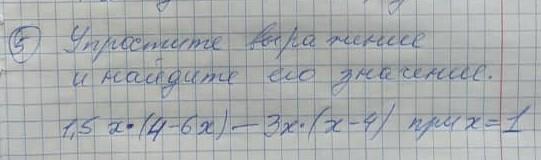 5 Упростите выражение
и найдите его значение.
1,5x·(4-6x)-3x·(x-4) при x=1